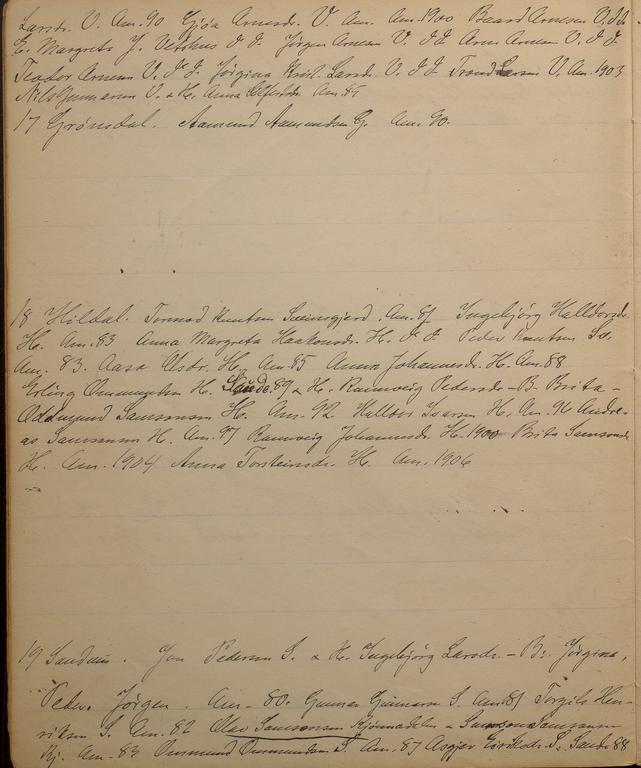 Larsdr. V. Am. 90 Gjøa Arnesdr. V. Am. Am. 1900 Baard Arnesen V. I d.
E. Margreta J. Vethus I d. Jørgen Arnesen V. I d Arne Arnesen V. I d.
Teodor Arnesen V. I d. Jørgina Krist. Larsd. V. I d Trond Larsen V. Am. 1903
Nils Gunnarsen V. & H. Anna Am. 85
17 Grónsdal. Aamund Aamundsen G. Am. 90.
18 Hildal. Tormod Knutsen Sveinsgjerd. Am. 81 Ingebjörg Halldorsdr.
H. Am. 83 Anna Margreta Haakonsdr. H. I d. Peder Knutsen Sv.
Am. 83. Aasa Olsdr. H. Am. 85 Anna Johannesdr. H. Am. 88
Erling H. Saude. 89 & H. Rannveig Pedersdr - B. Brita -
Oddmund Samsonsen H. Am. 92 Halldor Ivarsen H. Am. 96 Andre-
as Samsonsen H. Am. 97 Rannveig Johannesdr. H. 1900 Brita Samsonsdr.
H. Am. 1904 Anna Torsteinsdr. H. Am. 1906
19 Sandvin. Jon Pedersen S. & H. Ingebjörg Larsdr. - B: Jörgina,
Peder. Jörgen. Am - 80. Gunnar Gunnarsen S. Am. 81 Torgils Hen-
riksen S. Am. 82 Olav Samsonsen - Samson Samsonsen
Kj. Am. 83 Ommund Ommundsen S. Am. 87 Asgjer Eiriksdr. S. Saude 88